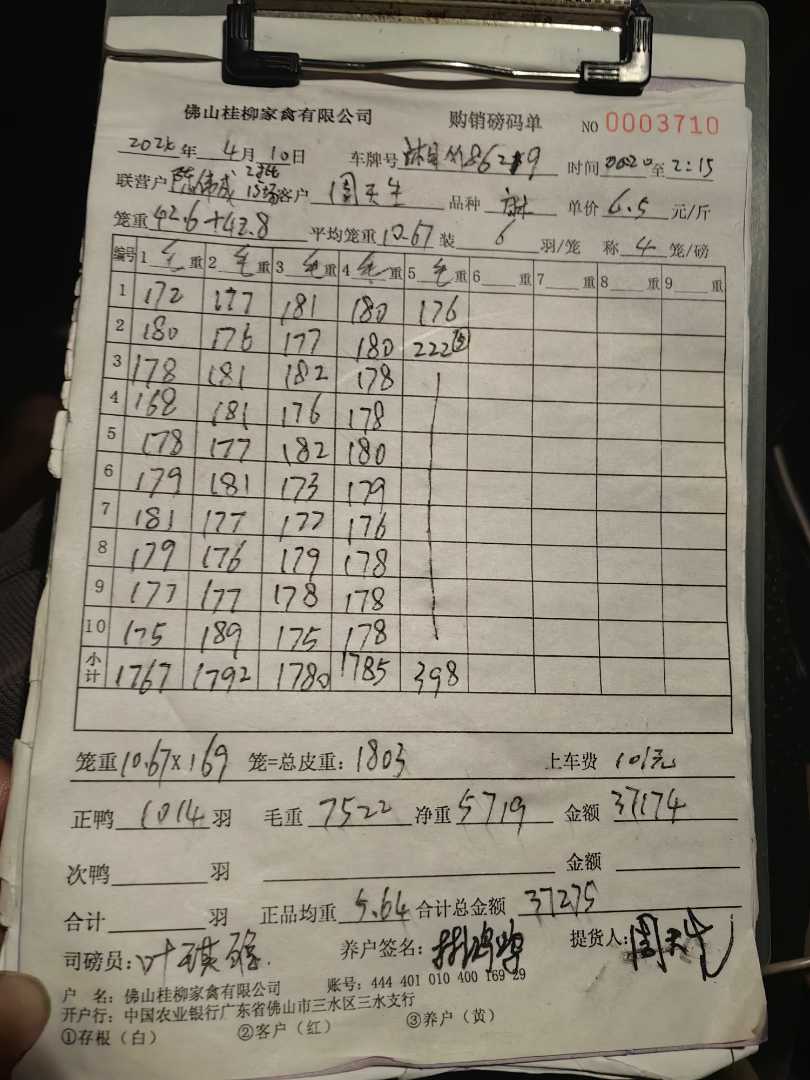 佛山桂柳家禽有限公司 购销磅码单 NO 0003710
年 4月10日 车牌号 8629 时间 0020 至 2:15
联营户 陈伟成 客户 周天生 品种 麻 单价 6.5 元/斤
笼重 42.6+42.8 平均笼重 10.67 装 6 羽/笼 称 4 笼/磅
编号 1 毛 重 2 毛 重 3 毛 重 4 毛 重 5 毛 重 6 重 7 重 8 重 9 重
1 172 177 181 180 176
2 180 176 177 180 222
3 178 181 182 178
4 168 181 176 178
5 178 177 182 180
6 179 181 173 179
7 181 177 177 176
8 179 176 179 178
9 177 177 178 178
10 175 189 175 178
小计 1767 1792 1780 1785 398
笼重 10.67×169 笼=总皮重: 1803 上车费 101元
正鸭 1014 羽 毛重 7522 净重 5719 金额 37174
次鸭 羽 金额
合计 羽 正品均重 5.64 合计总金额 37275
司磅员: 叶 养户签名: 提货人: 周天生
户 名: 佛山桂柳家禽有限公司 账号: 444 401 010 400 169 29
开户行: 中国农业银行广东省佛山市三水区三水支行
①存根（白） ②客户（红） ③养户（黄）